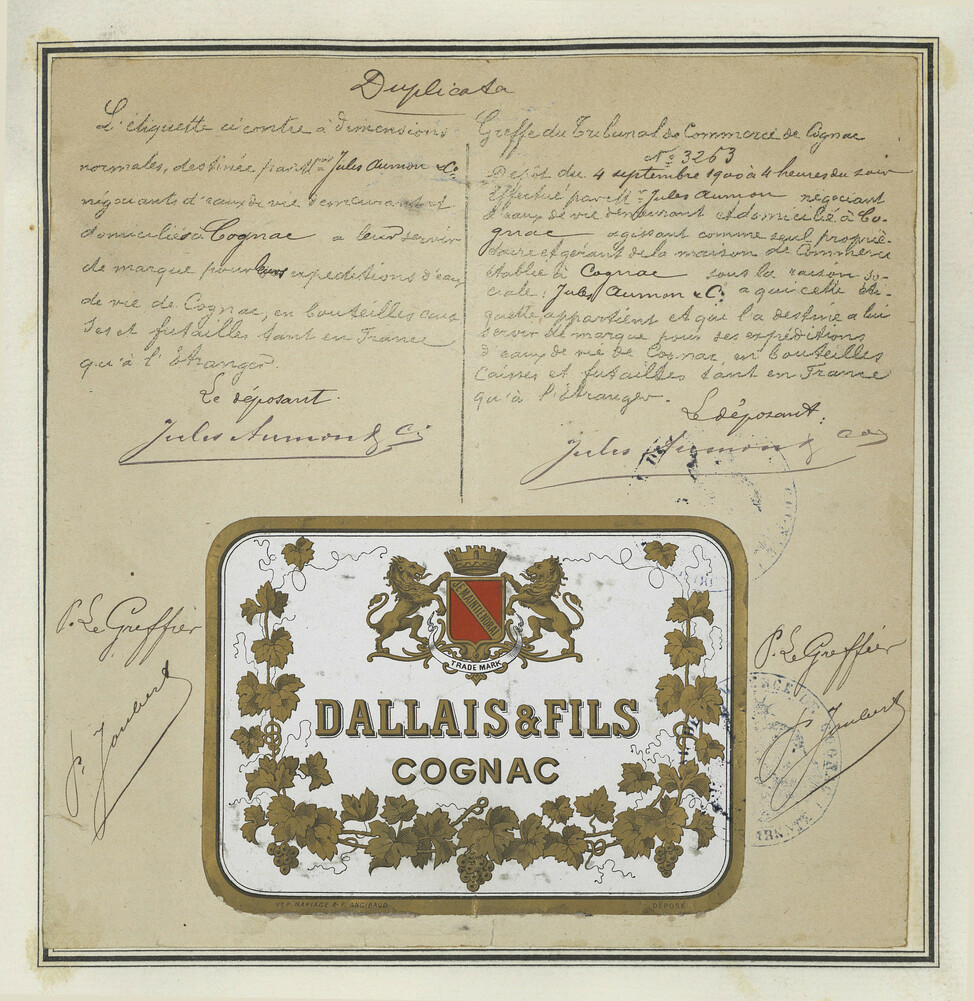 Duplicata
L'étiquette ci contre à dimensions
normales, destinée par Mrs Jules Aumon & Co
négociants d'eaux de vie demeurant et
domiciliés à Cognac a leur servir
de marque pour leurs expéditions d'eaux
de vie de Cognac, en bouteilles cais
ses et futailles tant en France
qu'à l'Etranger.
Le déposant.
Jules Aumon & Cie
Greffe du Tribunal de Commerce de Cognac
No 3263
Dépôt du 4 septembre 1900 à 4 heures du soir
Effectué par Mr Jules Aumon négociant
d'eaux de vie demeurant et domicilié à Co-
gnac agissant comme seul proprié-
taire et gérant de la maison de Commerce
établie à Cognac sous la raison so-
ciale: Jules Aumon & Co a qui cette éti-
quette appartient et qui l'a destinée a lui
servir de marque pour ses expéditions
d'eaux de vie de Cognac, en bouteilles
Caisses et futailles tant en France
qu'à l'Etranger.
Le déposant:
Jules Aumon & Co
JE MAINTIENDRAI
TRADE MARK
DALLAIS & FILS
COGNAC
DÉPOSÉ
P. Le Greffier
P. Joubert
P. Le Greffier
P. Joubert